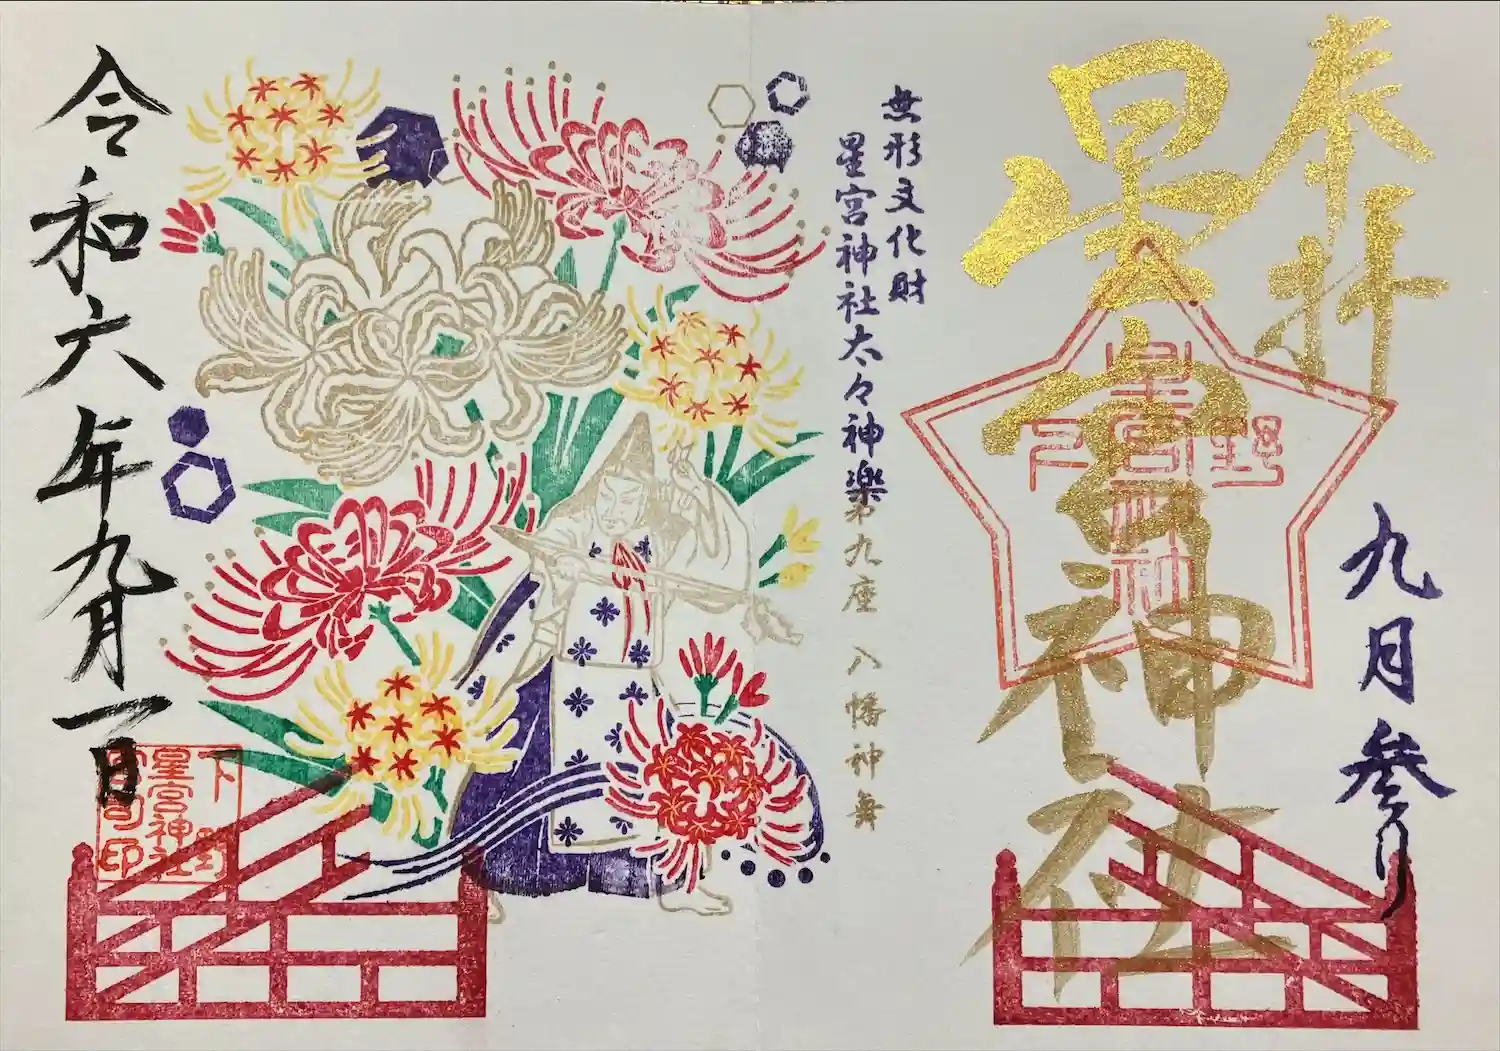 奉拝
星宮神社
下野
星宮神社
九月参り
無形文化財
星宮神社太々神楽
第九座 八幡神舞
令和六年九月一日
下野
星宮神社
宮司印